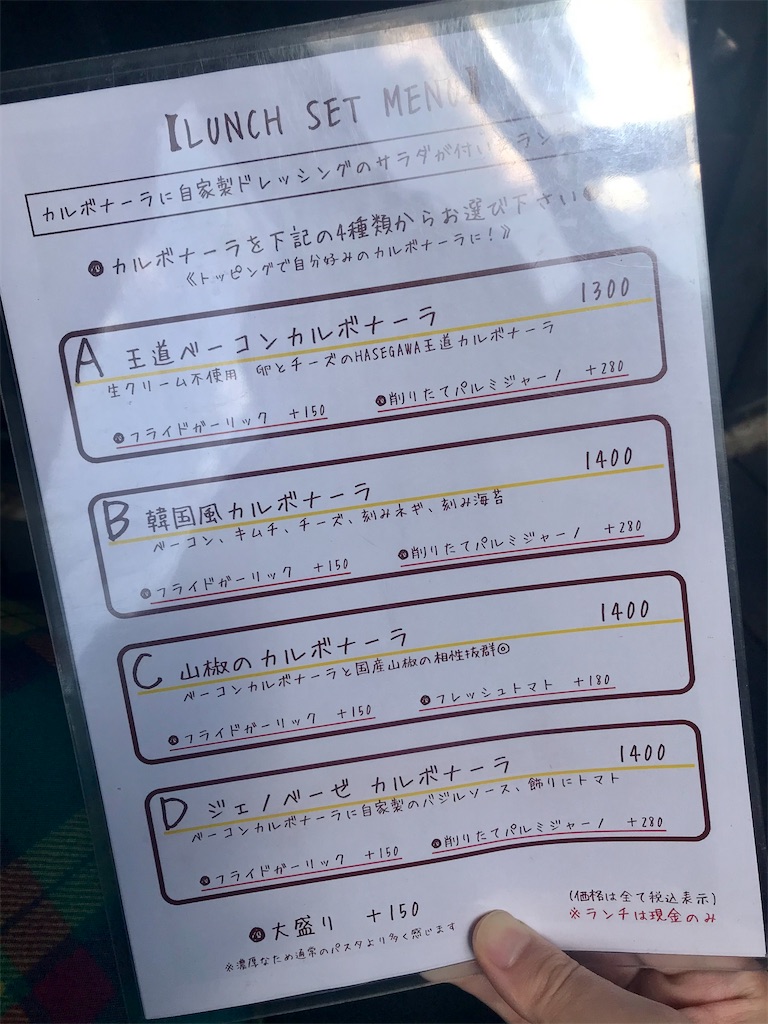 【LUNCH SET MENU】
カルボナーラに自家製ドレッシングのサラダが付いたラン
カルボナーラを下記の4種類からお選び下さい
《トッピングで自分好みのカルボナーラに!》
A 王道ベーコンカルボナーラ 1300
生クリーム不使用 卵とチーズのHASEGAWA王道カルボナーラ
フライドガーリック +150 削りたてパルミジャーノ +280
B 韓国風カルボナーラ 1400
ベーコン、キムチ、チーズ、刻みネギ、刻み海苔
フライドガーリック +150 削りたてパルミジャーノ +280
C 山椒のカルボナーラ 1400
ベーコンカルボナーラと国産山椒の相性抜群◎
フライドガーリック +150 フレッシュトマト +180
D ジェノベーゼ カルボナーラ 1400
ベーコンカルボナーラに自家製のバジルソース、飾りにトマト
フライドガーリック +150 削りたてパルミジャーノ +280
大盛り +150
※濃厚なため通常のパスタより多く感じます
(価格は全て税込表示)
※ランチは現金のみ